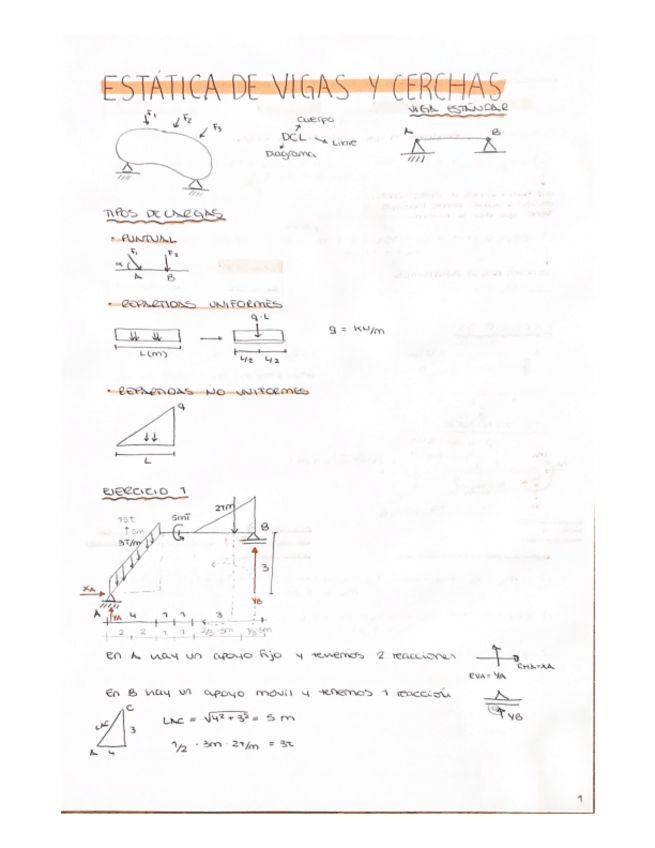 ESTÁTICA DE VIGAS Y CERCHAS
F1 F2 F3
Cuerpo
DCL
Libre
Diagrama
VIGA ESTÁNDAR
A B
TIPOS DE CARGAS
• PUNTUAL
F1 F2
α
A B
• REPARTIDAS UNIFORMES
q·L
L(m)
L/2 L/2
q = KN/m
• REPARTIDAS NO UNIFORMES
q
L
EJERCICIO 1
15t
5m
3T/m
5mT
2T/m
B
3
XA
YA
YB
A
4 1 1 3
2 2 1 1
En A hay un apoyo fijo y tenemos 2 reacciones
RVA=YA
RHA=XA
En B hay un apoyo móvil y tenemos 1 reacción
YB
C
LAC
3
A 4
LAC = √4²+3² = 5 m
1/2 · 3m · 2T/m = 3t
1